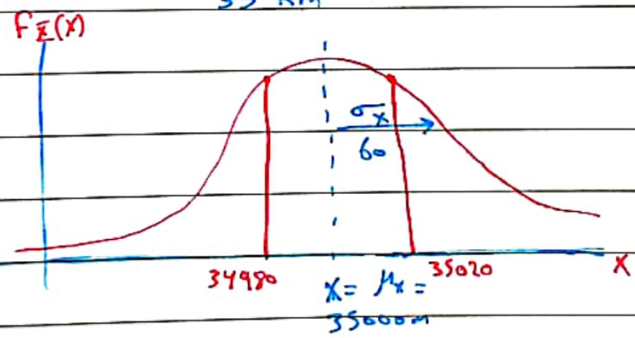 35 km
fx(x)
σx
60
34980
35020
x
x = μx =
35000m